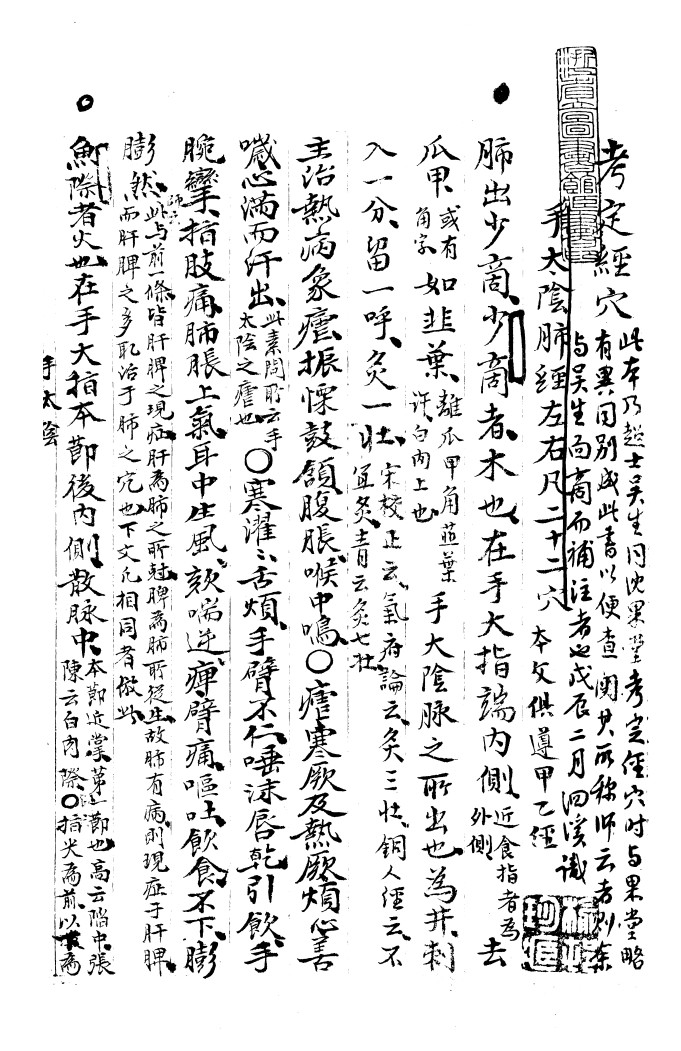 考定經穴
此本乃趙士吴生同沈果堂考定經穴时与果堂略
有異同别成此書以便查閱其所称师云者則余
与吴生面商而補注者也戊辰二月泗溪識
手太陰肺經左右凡二十二穴 本文俱遵甲乙經
肺出少商少商者木也在手大指端内側近食指者為外側去
爪甲或有角字如韭葉離爪甲角韮葉許白肉上也手大陰脉之所出也為井刺
入一分留一呼灸一壯宋校正云氣府論云灸三壯銅人經云不宜灸千金云灸七壯
主治熱病象瘧振慄鼓頷腹脹喉中鳴〇瘧寒厥及熱厥煩心善
噦心滿而汗出此素問所云手太陰之瘧也〇寒濯濯舌煩手臂不仁唾沫唇乾引飲手
腕攣指肢痛肺脹上氣耳中生風欬喘逆痺臂痛嘔吐飲食不下膨
膨然师云此与前一條皆肝脾之現症肝為肺之所尅脾為肺所從生故肺有病則現症于肝脾而肝脾之多取治于肺之穴也下文凡相同者倣此
魚際者火也在手大指本節後内側散脉中本節近掌第一節也高云陷中張陳云白肉際〇指尖為前以後為
手太陰